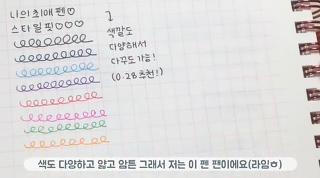 나의 최애 펜♡
스타일핏♡♡♡
색깔도
다양해서
다꾸도 가능!
(0.28 추천!)
색도 다양하고 얇고 암튼 그래서 저는 이 펜 팬이에요(라임ㅎ)